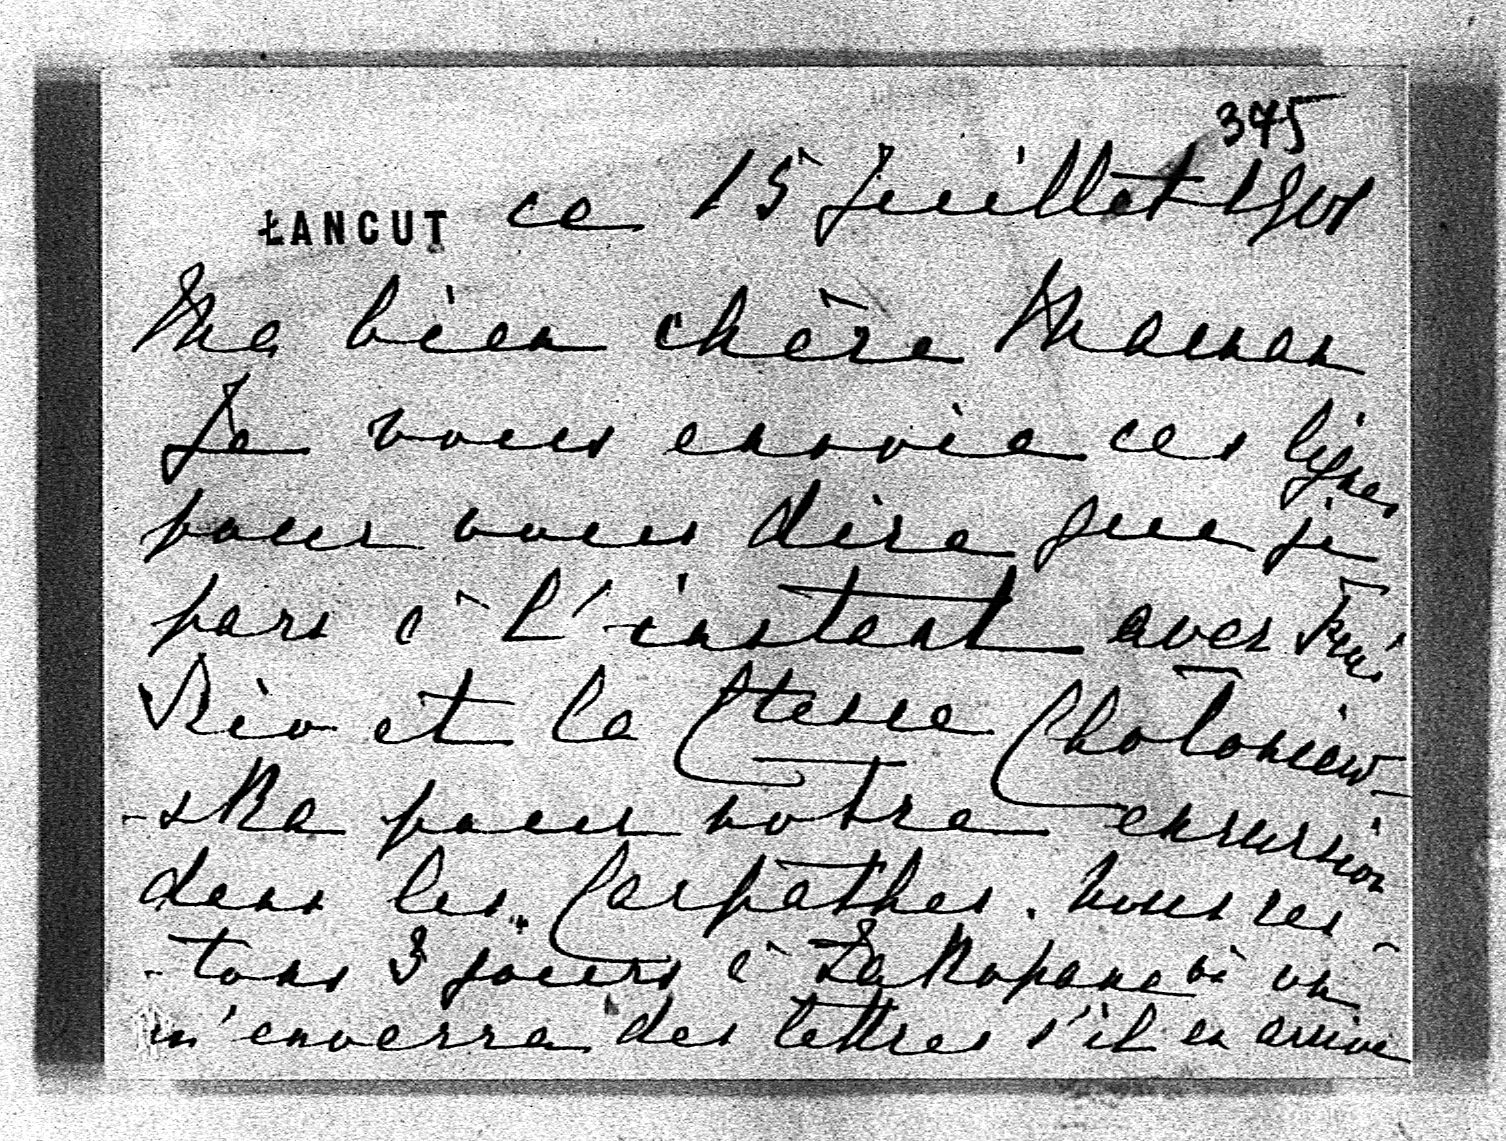 375
ŁANCUT ce 15 Juillet 1901
Ma bien chère Maman
Je vous envoie ces lignes
pour vous dire que je
pars à l'instant avec
et la Ctesse Choloniew
-ska pour notre excursion
dans les Carpathes. Nous res
-tons 3 jours à Zakopane où on
m'enverra des lettres s'il en arrive